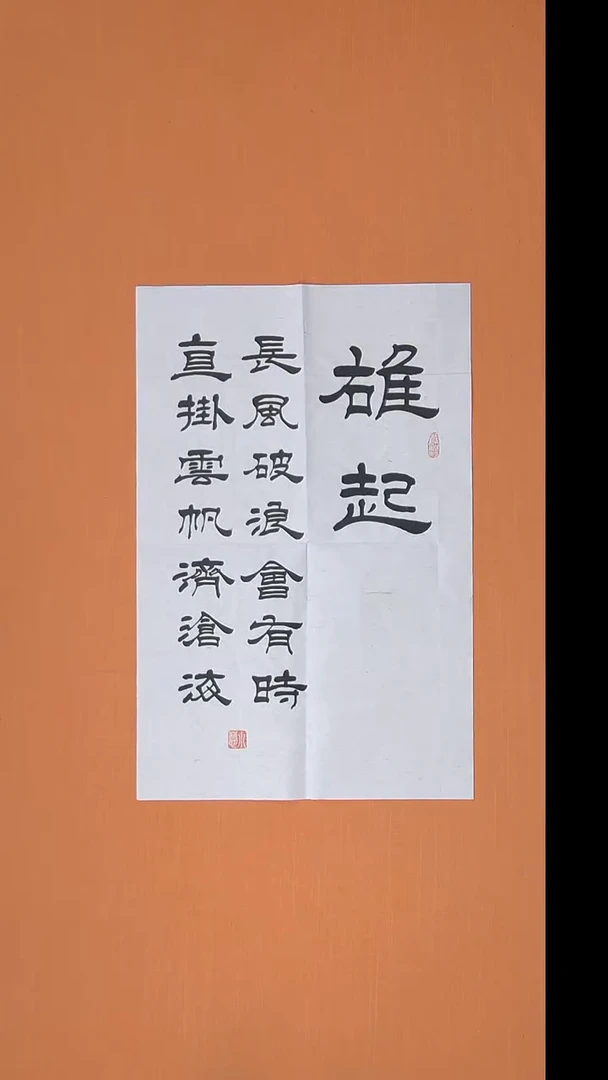 雄起
長風破浪會有時
直掛雲帆濟滄海